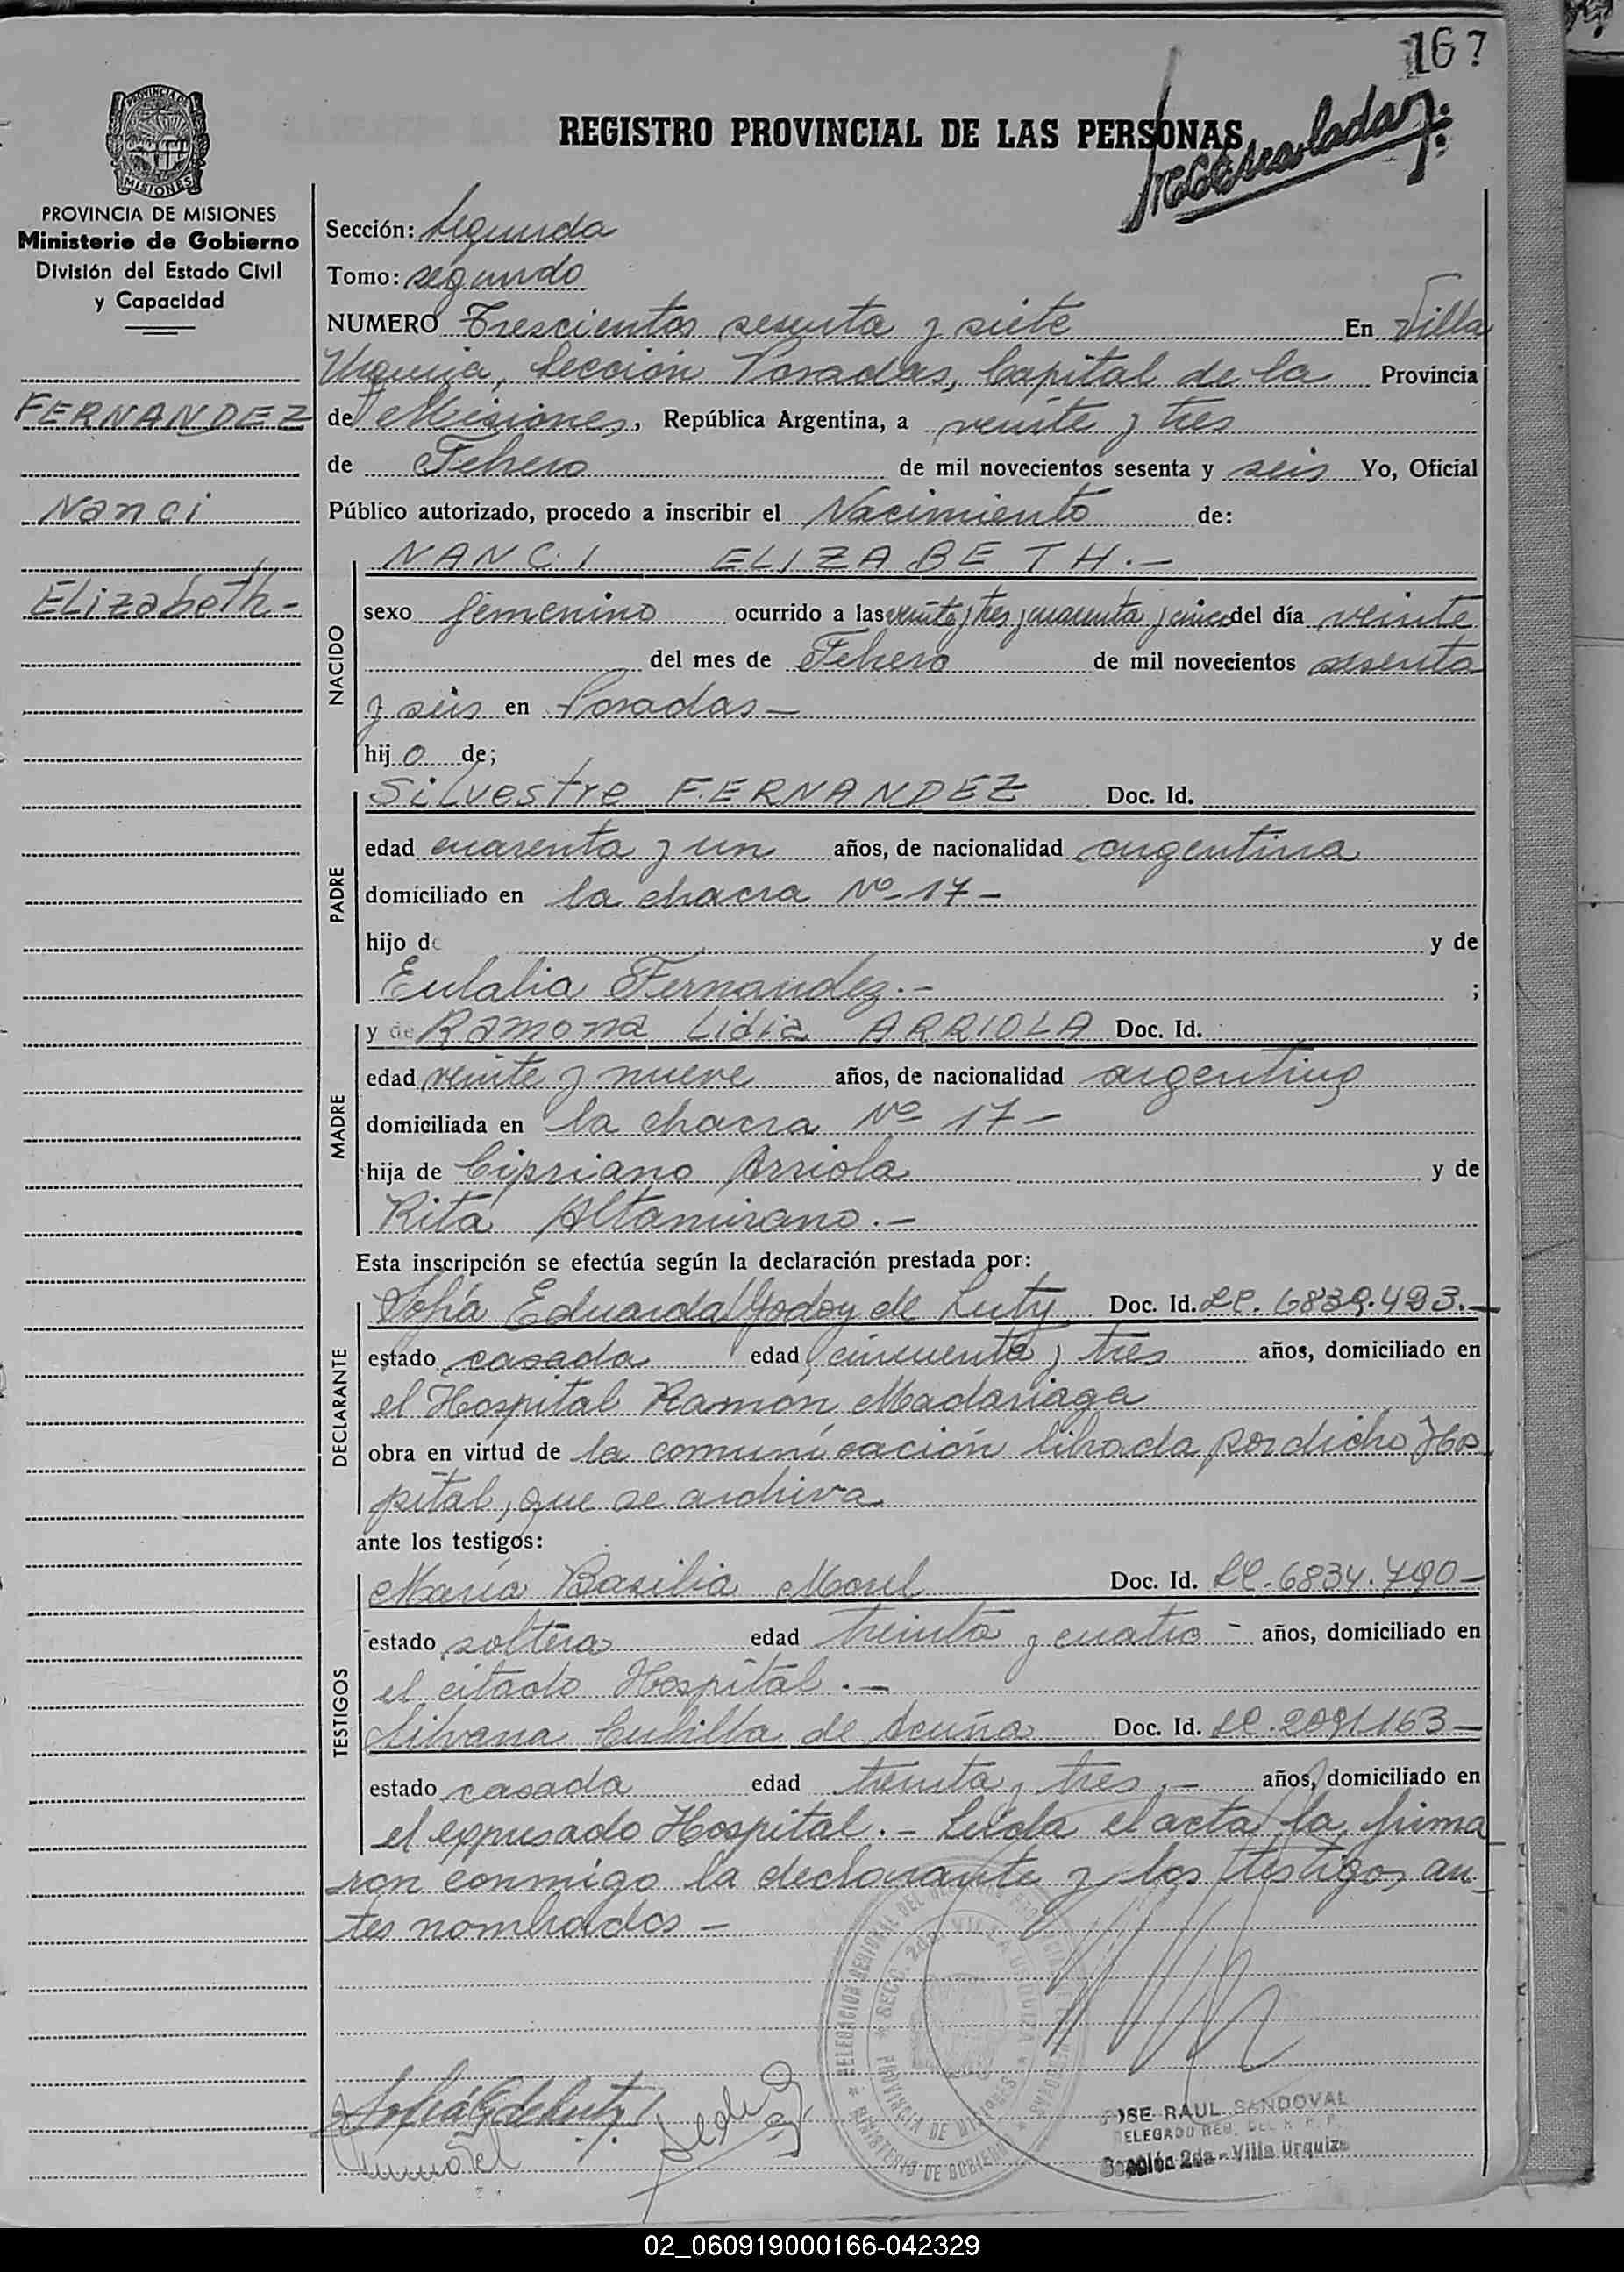 167
PROVINCIA DE MISIONES
REGISTRO PROVINCIAL DE LAS PERSONAS
PROVINCIA DE MISIONES
Ministerio de Gobierno
División del Estado Civil
y Capacidad
FERNANDEZ
Nanci
Elizabeth-
Sección: Segunda
Tomo: segundo
NUMERO Trescientos sesenta y siete En Villa
Urquiza, Sección Posadas, Capital de la Provincia
de Misiones, República Argentina, a veinte y tres
de Febrero de mil novecientos sesenta y seis Yo, Oficial
Público autorizado, procedo a inscribir el Nacimiento de:
NANCI ELIZABETH.-
NACIDO
sexo femenino ocurrido a las veinte y tres y cuarenta y cinco del día veinte
del mes de Febrero de mil novecientos sesenta
y seis en Posadas-
hij o de;
PADRE
Silvestre FERNANDEZ Doc. Id.
edad cuarenta y un años, de nacionalidad argentina
domiciliado en la chacra Nº 17-
hijo de y de
Eulalia Fernandez.- ;
MADRE
y de Ramona Lidia ARRIOLA Doc. Id.
edad veinte y nueve años, de nacionalidad argentina
domiciliada en la chacra Nº 17-
hija de Cipriano Arriola y de
Rita Altamirano.-
Esta inscripción se efectúa según la declaración prestada por:
DECLARANTE
Sofía Eduarda Godoy de Luty Doc. Id. LC. 6839.493.-
estado casada edad cincuenta y tres años, domiciliado en
el Hospital Ramón Madariaga
obra en virtud de la comunicación librada por dicho Hos
pital, que se archiva
ante los testigos:
TESTIGOS
María Basilia Morel Doc. Id. LC. 6834.790-
estado soltera edad treinta y cuatro - años, domiciliado en
el citado Hospital.-
Silvana Cubilla de Acuña Doc. Id. LC. 2091163-
estado casada edad treinta y tres.- años, domiciliado en
el expresado Hospital.- Leída el acta la firma
ron conmigo la declarante y los testigos an-
tes nombrados-
DELEGACION REGIONAL DEL REGISTRO PROVINCIAL DE LAS PERSONAS
SECC. 2da. VILLA URQUIZA
PROVINCIA DE MISIONES
MINISTERIO DE GOBIERNO
JOSE RAUL SANDOVAL
DELEGADO REG. DEL R. P. P.
Sección 2da - Villa Urquiza
02_060919000166-042329